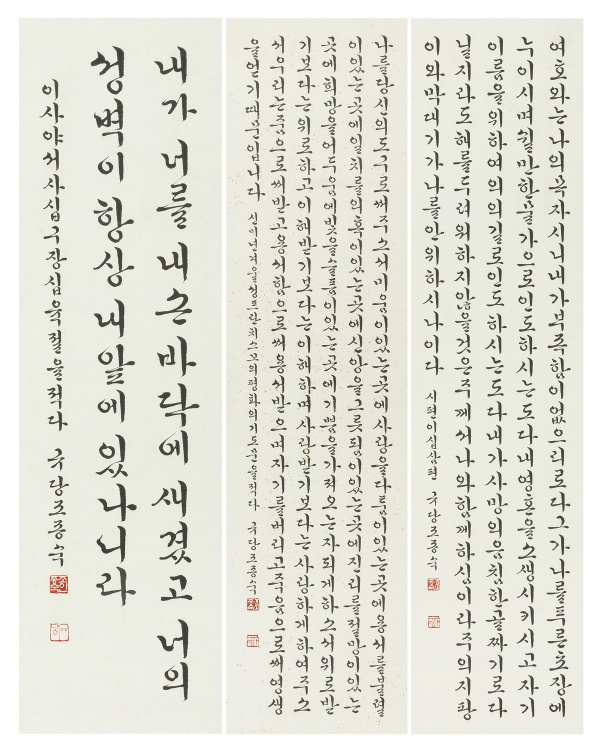 여호와는나의목자시니내가부족함이없으리로다그가나를푸른초장에
누이시며쉴만한물가으로인도하시는도다내영혼을소생시키시고자기
이름을위하여의의길로인도하시는도다내가사망의음침한골짜기로다
닐지라도해를두려워하지않을것은주께서나와함께하심이라주의지팡
이와막대기가나를안위하시나이다 시편이십삼편 국당조종숙
나를당신의도구로써주소서미움이있는곳에사랑을다툼이있는곳에용서를분열
이있는곳에일치를의혹이있는곳에신앙을그릇됨이있는곳에진리를절망이있는
곳에희망을어두움에빛을슬픔이있는곳에기쁨을가져오는자되게하소서위로받
기보다는위로하고이해받기보다는이해하며사랑받기보다는사랑하게하여주소
서우리는줌으로써받고용서함으로써용서받으며자기를버리고죽음으로써영생
을얻기때문입니다 성프란치스코의평화의기도문을적다 국당조종숙
내가 너를 내 손바닥에 새겼고 너의
성벽이 항상 내 앞에 있나니라
이사야서 사십구장 십육절을 적다 국당 조종숙